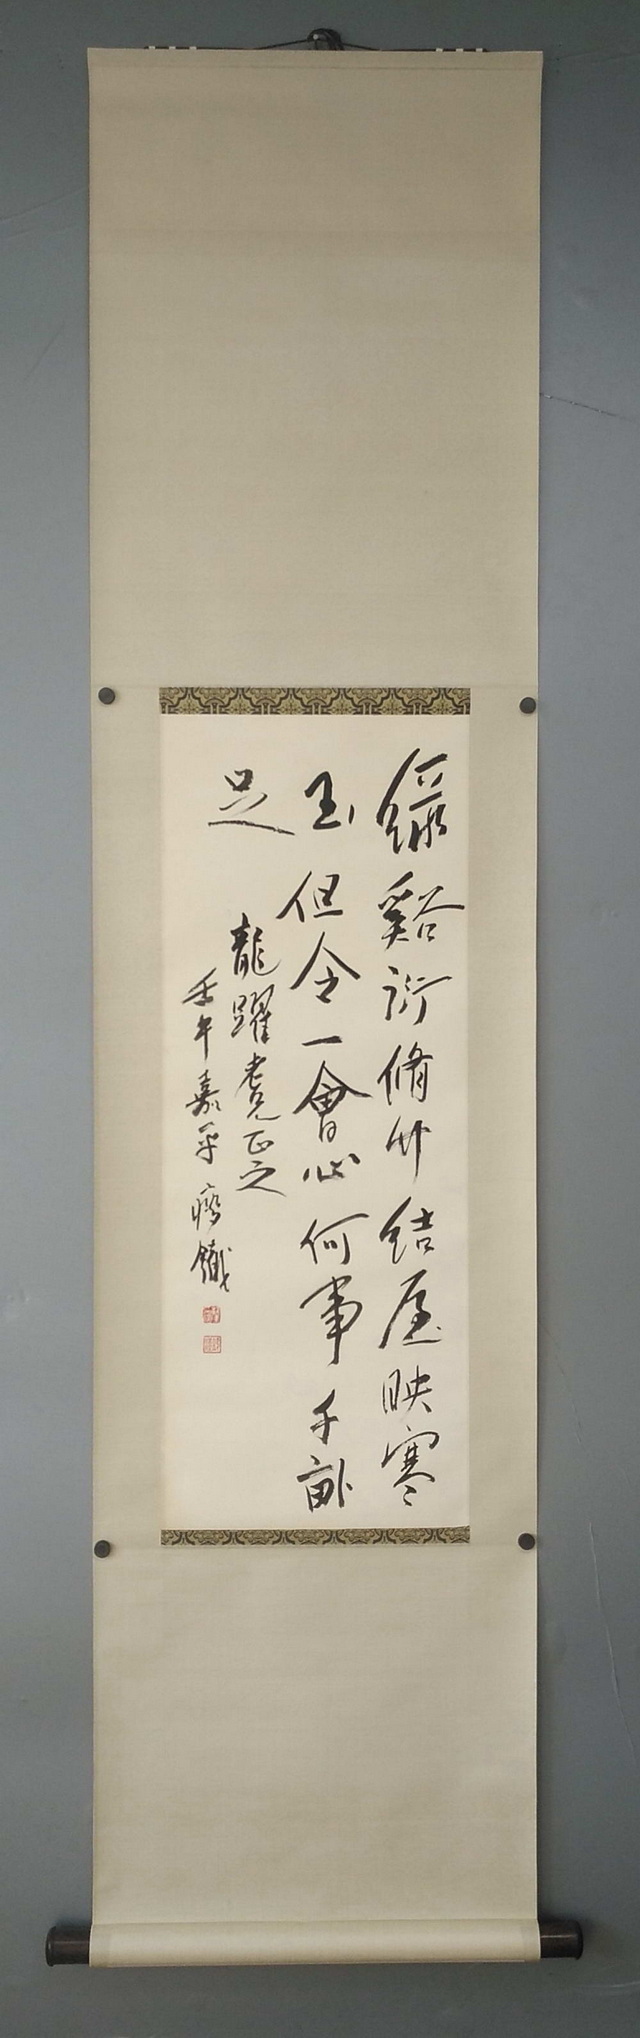 緣谿衍脩竹結屋映寒
玉但令一會心何事千畝
足
龍躍老兄正之
壬午嘉平瘦鐵